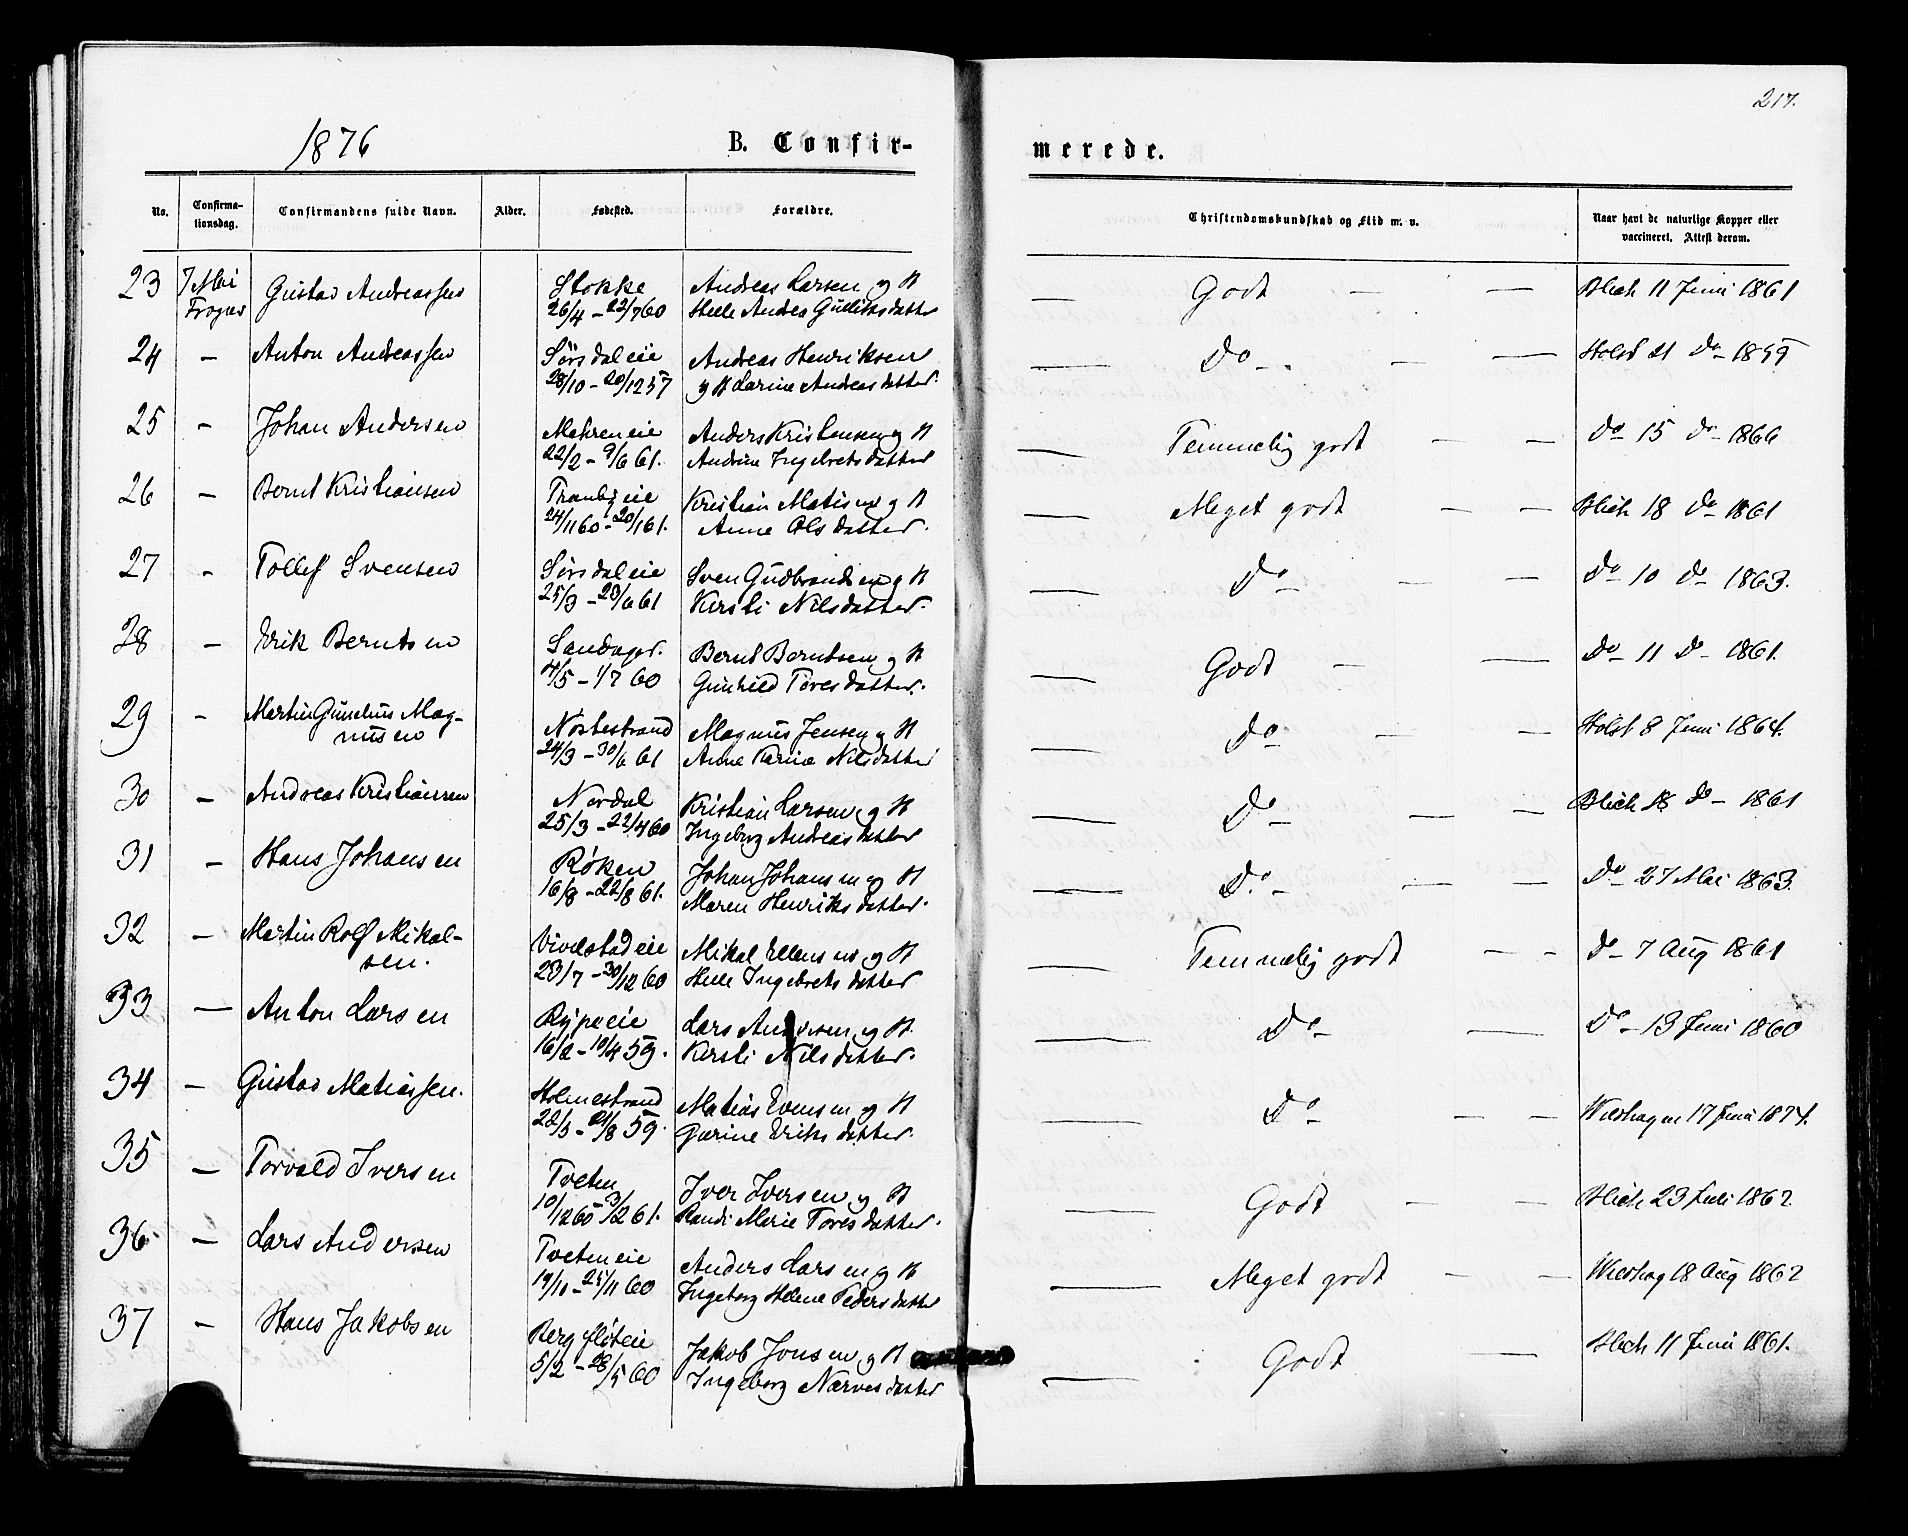 217.
1876 B. Confir- merede.
No. Confirma-tionsdag. Confirmandens fulde Navn. Alder. Fødested. Forældre. Christendomskundskab og Flid m. v. Naar havt de naturlige Kopper eller vaccineret. Attest derom.
23 7 Mai Gustav Andreassen Stokke Andreas Larsen og H — Godt — — Blich 11 Juni 1861
Frogner 26/4 - 22/7 60 Helle Andrea Gulliksdatter
24 - Anton Andreassen Sørsdal eie Andreas Henriksen — Do - — — Holst 21 Do - 1859
28/10 - 20/12 57 og H Larine Andreasdatter.
25 - Johan Andersen Mehren eie Anders Kristensen og H — Temmelig godt — — Do 15 Do 1866
22/2 - 9/6 61. Andrine Ingebretsdatter
26 - Bernt Kristiansen Tranby eie Kristian Matisen og H — Meget godt — — Blich 18 Do 1861
24/11 60 - 20/1 61. Anne Olsdatter.
27 - Tollef Svensen Sørsdal eie Sven Gudbrandsen og H — Do — — Do 10 Do 1863.
25/3 - 23/6 61 Kirsti Nilsdatter.
28 - Erik Berntsen Bernt Berntsen og H — Godt — — Do 11 Do - 1861.
4/5 - 1/7 60 Gunhild Toresdatter.
29 - Martin Mag- Nordstrand Magnus Jensen og H — Do — — Holst 8 Juni 1864.
nusen 24/3 - 30/6 61 Anne Karine Nilsdatter
30 - Andreas Kristiansen Nordal Kristian Larsen og H — Do — — Blich 18 Do - 1861
25/3 - 22/4 60 Ingeborg Andreasdatter
31 - Hans Johansen Røken Johan Johansen og H — Do - — — Do 27 Mai 1863.
16/3 - 22/8 61. Maren Henriksdatter.
32 - Martin Rolf Mikal- Vivelstad eie Mikal Ellensen og H — Temmelig godt — — Do 7 Aug 1861
sen. 23/7 - 30/12 60 Helle Ingebretsdatter
33 — Anton Larsen Rypeeie Lars Andersen og H. — Do - — Do - 13 Juni 1860
16/2 - 10/4 59. Kirsti Nilsdatter.
34 - Gustav Matiassen. Holmestrand Matias Evensen og H — Do — — 17 Juni 1874.
59. Eriksdatter.
35 — Torvald Iversen Tveten Iver Iversen og H — Godt — — Blich 23 Juli 1862
10/12 60 - 3/2 61. Randi Marie Toresdatter.
36 - Lars Andersen Tveten eie Anders Larsen og H — Meget godt — — 18 Aug 1862
19/10 - 25/11 60 Ingeborg Helene Pedersdatter
37 - Hans Jakobsen Berg fløteie Jakob Jonsen og H — Godt — Blich 11 Juni 1861.
5/2 - 28/5 60 Ingeborg Narvesdatter